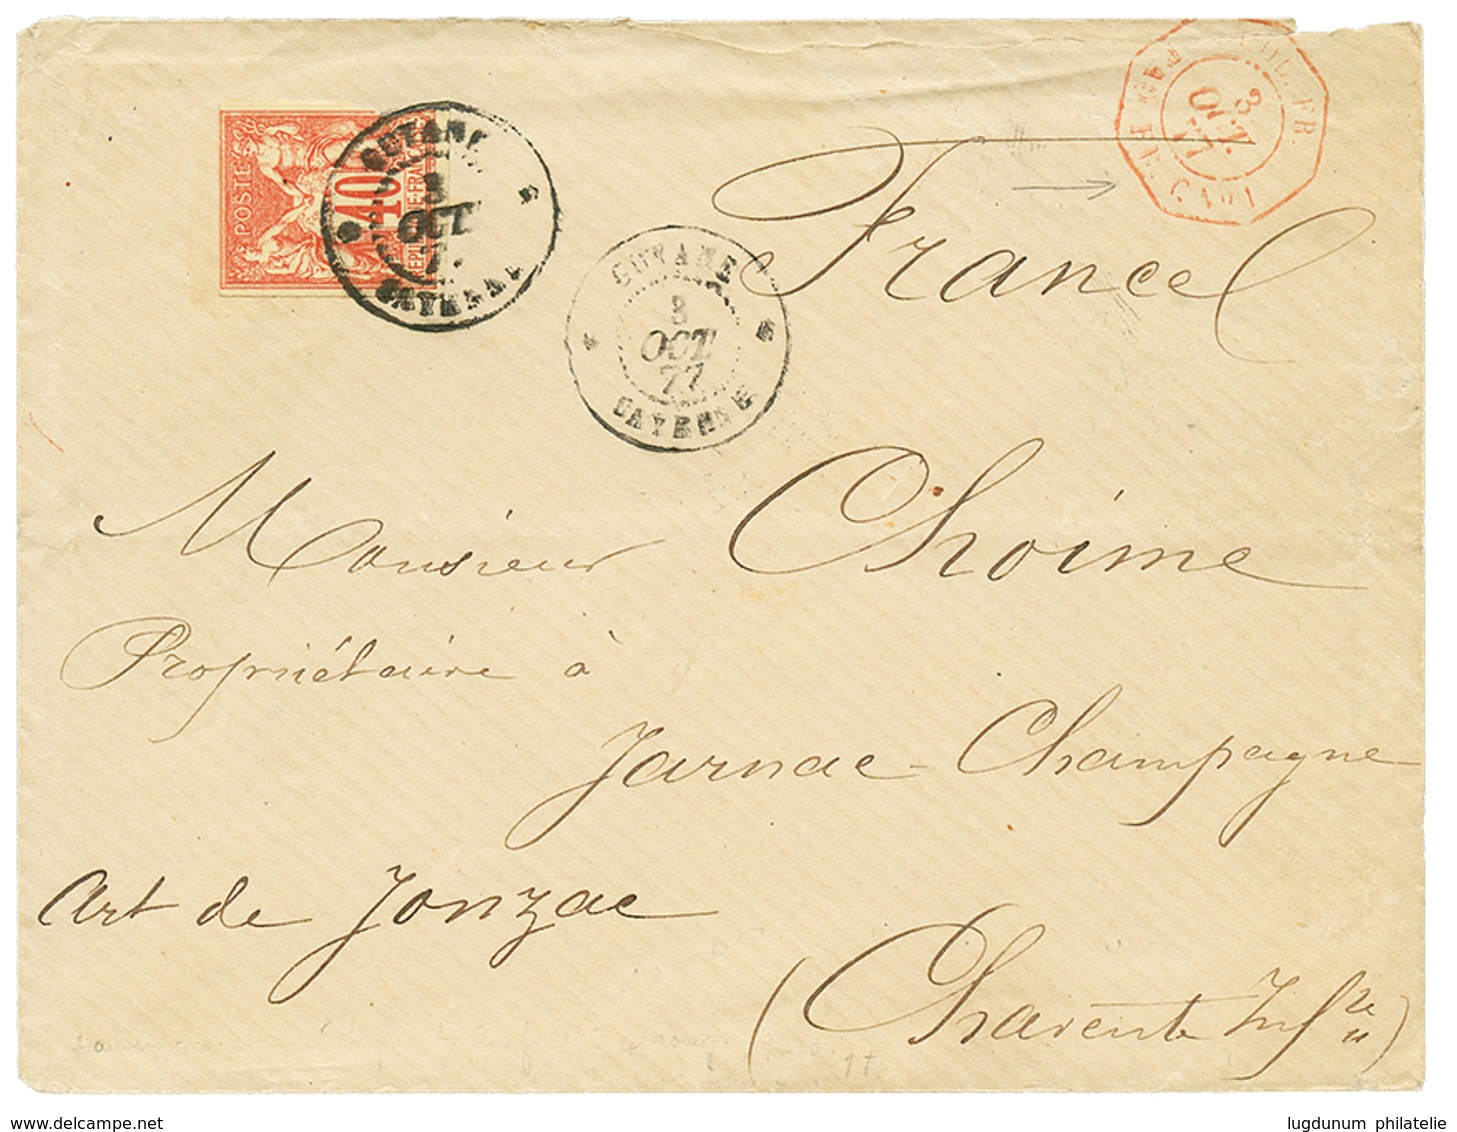 POSTES
40
RÉPUBLIQUE-FRANÇAISE
GUYANE
3
OCT
7
CAYENNE
GUYANE
3
OCT
77
CAYENNE
COL. FR.
3
OCT.
77
PAQ. FR. CAY. 1
France
Monsieur Choime
Propriétaire à
Jarnac-Champagne
Art de Jonzac
(Charente Infre)
www.delcampe.net
lugdunum philatelie